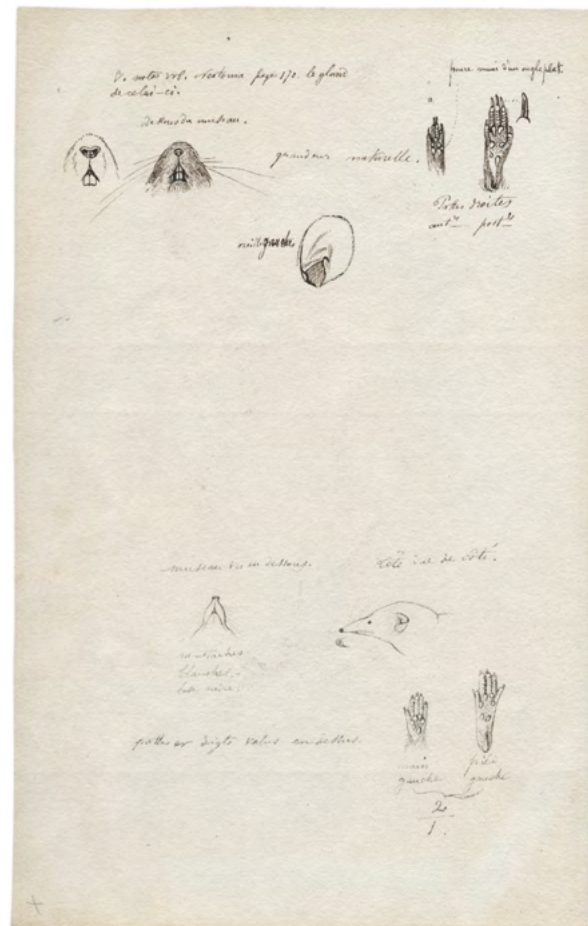 V. notes vol. Neotoma page 172. le gland
de celui-ci.
pouce muni d'un ongle plat.
a
Dessus du museau.
grandeur naturelle.
Pattes droites
ant.re post.re
oreille gauche
museau vu en dessous.
Tête vue de côté.
moustaches
blanches.
base noire.
pattes et doigts velus en dessus.
main
gauche
pied
gauche
2
1.